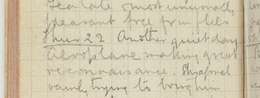 Tea late. most unusual,
pleasant free from flies
Thurs 22 Another quiet day
Aeroplane making great
reconnaissance. Shrapnel
vainly trying to bring him